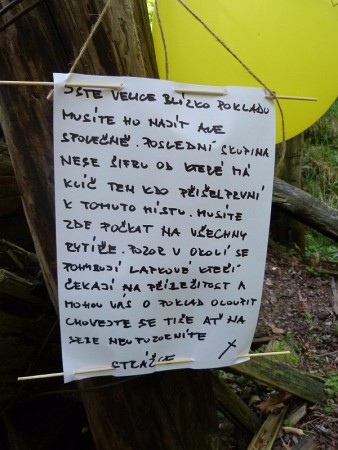 JSTE VELICE BLÍZKO POKLADU
MUSÍTE HO NAJÍT ALE
SPOLEČNĚ. POSLEDNÍ SKUPINA
NESE ŠIFRU OD KTERÉ MÁ
KLÍČ TEN KDO PŘIŠEL PRVNÍ
K TOMUTO MÍSTU. MUSÍTE
ZDE POČKAT NA VŠECHNY
RYTÍŘE. POZOR V OKOLÍ SE
POHYBUJÍ LAPKOVÉ KTEŘÍ
ČEKAJÍ NA PŘÍLEŽITOST A
MOHOU VÁS O POKLAD OLOUPIT
CHOVEJTE SE TIŠE AŤ NA
SEBE NEUPOZORNÍTE
STRÁŽCE